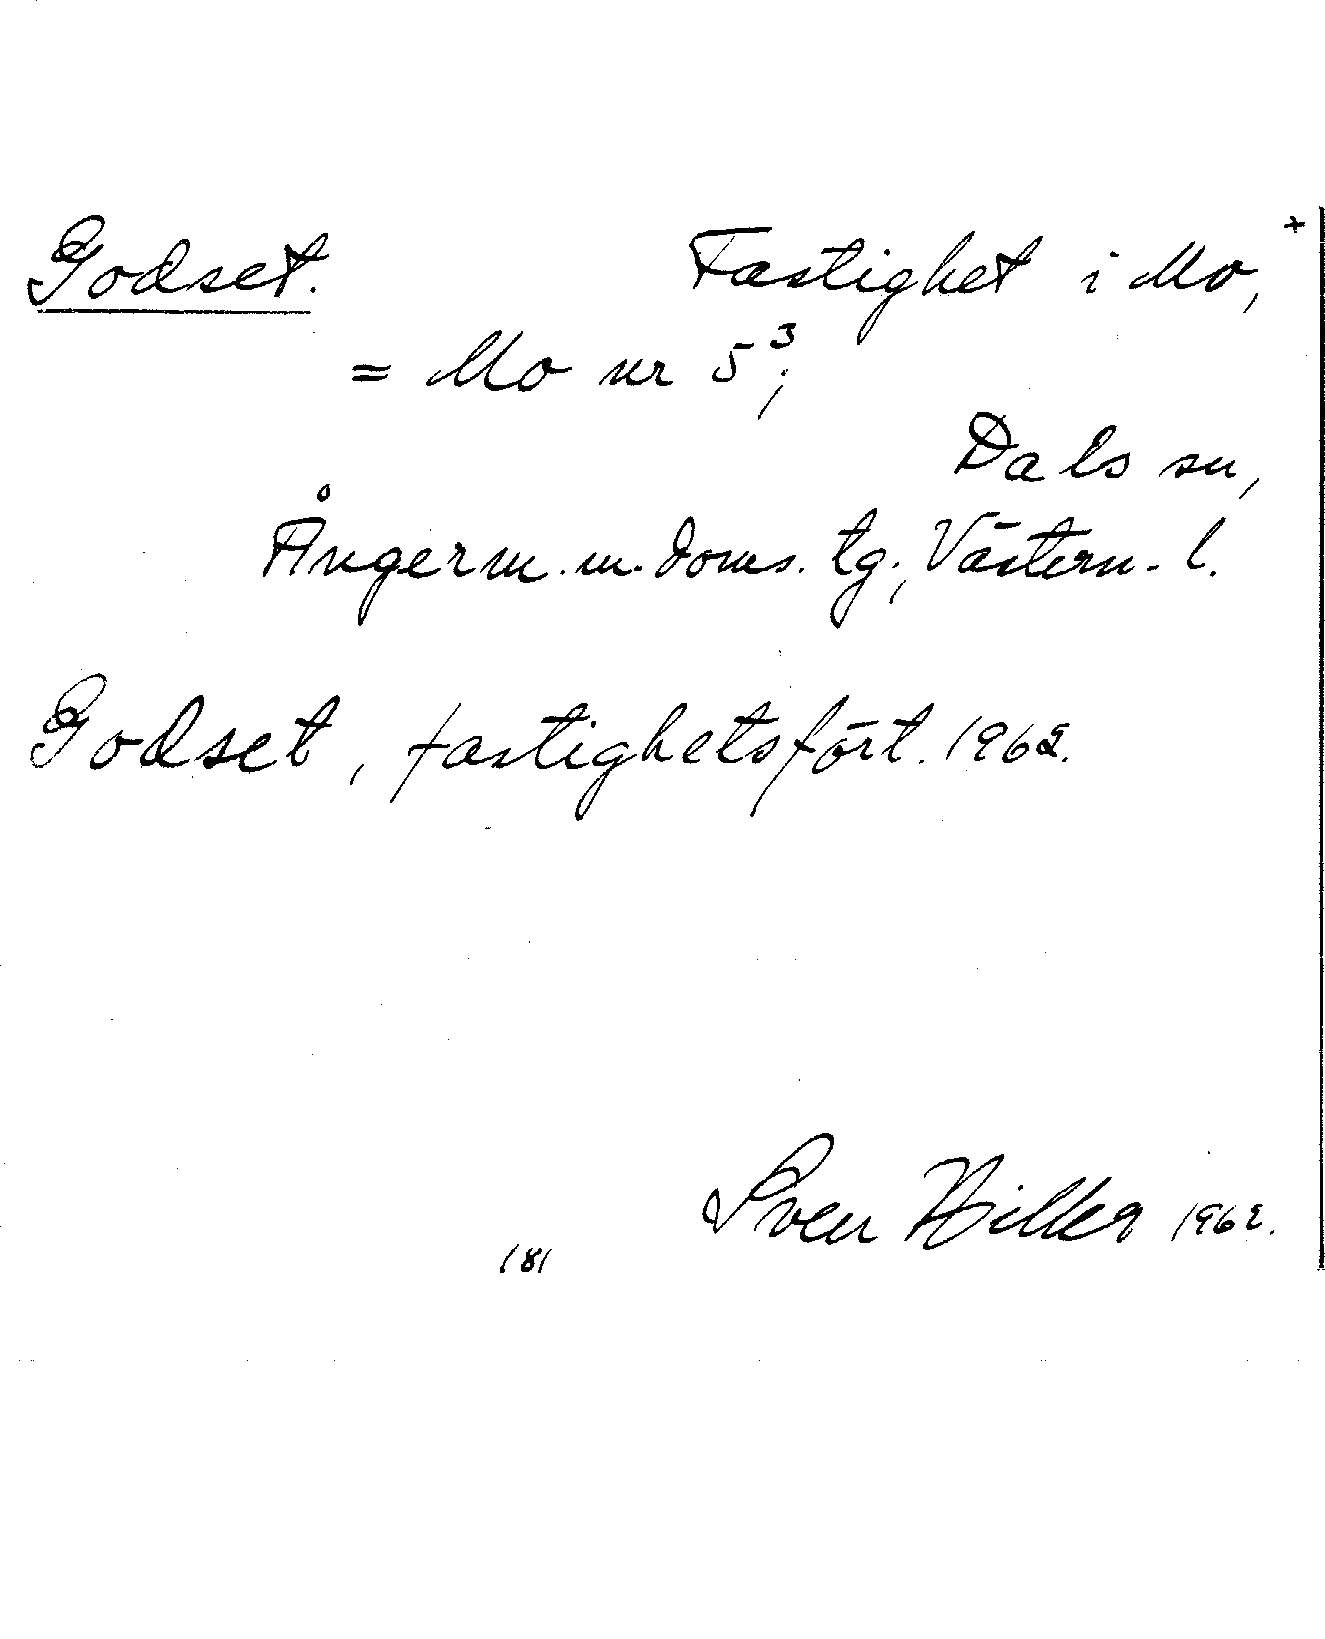 +
Godset. Fastighet i Mo,
= Mo nr 5³;
Dals sn,
Ångerm. m. doms. tg., Västern. l.
Godset, fastighetsfört. 1962.
Sven Hilka 1962.
181